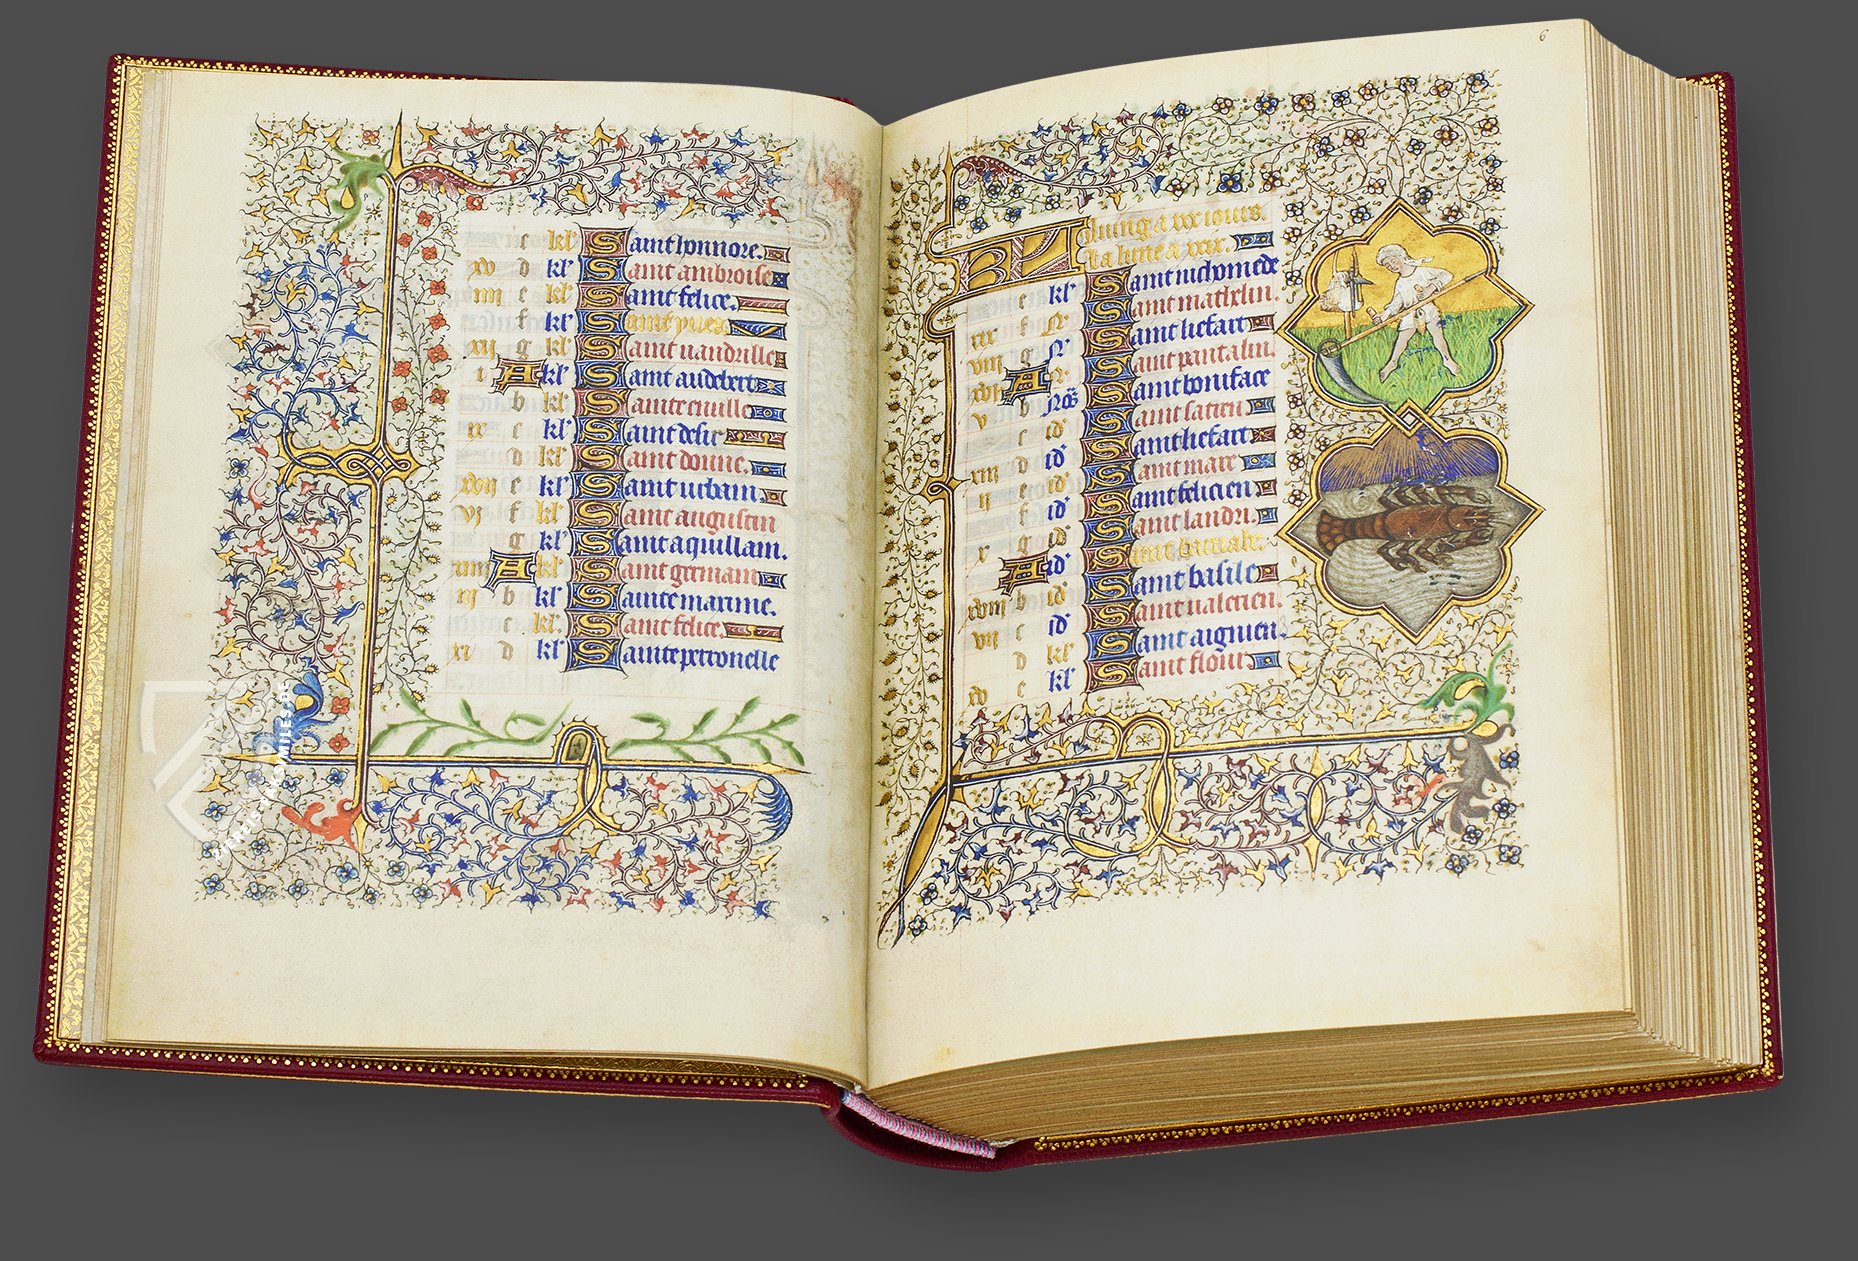 e kl' Saint honnore.
xv d kl' Saint ambroise
iiii e kl' Saint felice.
f kl' Saint yues.
xii g kl' Saint uandrille
i A kl' Saint audebert
b kl' Sainte
ix c kl' Saint desir
d kl' Saint donne.
xvii e kl' Saint urbain
vi f kl' Saint augustin
g kl' Saint aquillain.
xiiii A kl' Saint germain
iii b kl' Sainte maxime.
c kl' Saint felice.
xi d kl' Sainte perronelle
6
Juing a xxx iours.
La lune a xxix.
e kl' Saint nichomede
xix f Saint mathelin.
viii g Saint liefart
xvi A Saint pantalin.
v b Saint boniface
c id' Saint
xiii d id' Saint liefart
ii e id' Saint marc
f id' Saint felicien
x g id' Saint landri.
A id' Saint barnabe.
xviii b id' Saint basile
vii c id' Saint ualerien.
d kl' Saint aignien.
xv e kl' Saint flour